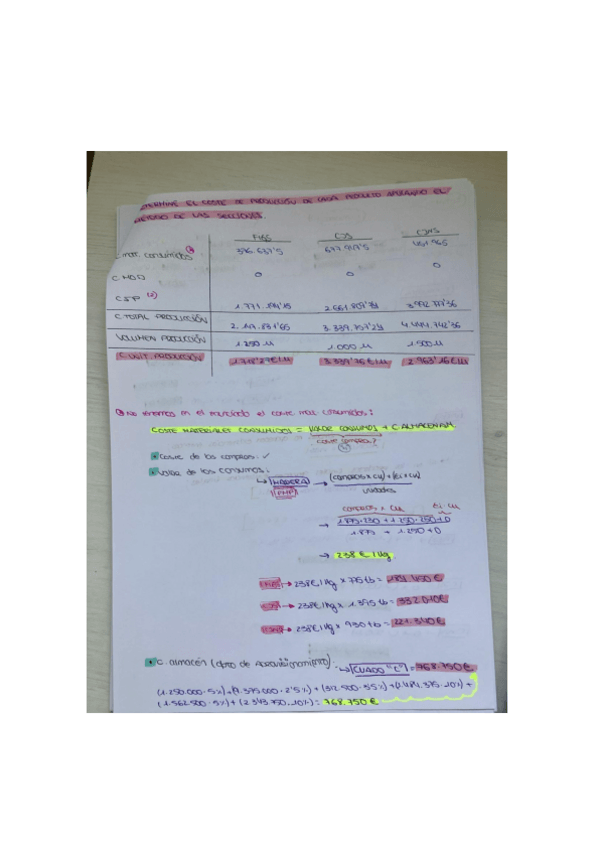 EL COSTE DE PRODUCCIÓN DE CADA PRODUCTO APLICANDO EL
MÉTODO DE LAS SECCIONES.
C. mat. consumidos (1) 396.637'5 677.919'5 451.965
C MOD 0 0 0
(2) 1.771. 2.661. 3.992.777'36
C. TOTAL PRODUCCIÓN 3.339.757'29 4.444.742'36
VOLUMEN PRODUCCIÓN 1.250 u 1.000 u 1.500 u
C. UNIT. PRODUCCIÓN 3.339'76 €/u 2.963'16 €/u
(1) No tenemos en el enunciado el coste mat. consumidos:
COSTE MATERIALES CONSUMIDOS = VALOR CONSUMOS + C. ALMACENAM.
• Coste de las compras: ✓
• Valor de los consumos:
↳ MADERA → (compras x cu) + (Ei x cu)
PMP unidades
compras x cu Ei cu
→ 1.875·230 + 1.250·250 + 0
1.875 + 1.250 + 0
→ 238 €/kg
→ 238 €/kg x 775 tb = 184.450 €
→ 238 €/kg x 1.395 tb = 332.010 €
→ 238 €/kg x 930 tb = 221.340 €
• C. almacén (dpto de aprovisionamiento). → CUADRO "C" = 768.750 €
(1.250.000 · 5%) + (9.375.000 · 2'5%) + (312.500 · 5'5%) + (1.484.375 · 10%) +
(1.562.500 · 5%) + (2.343.750 · 10%) = 768.750 €